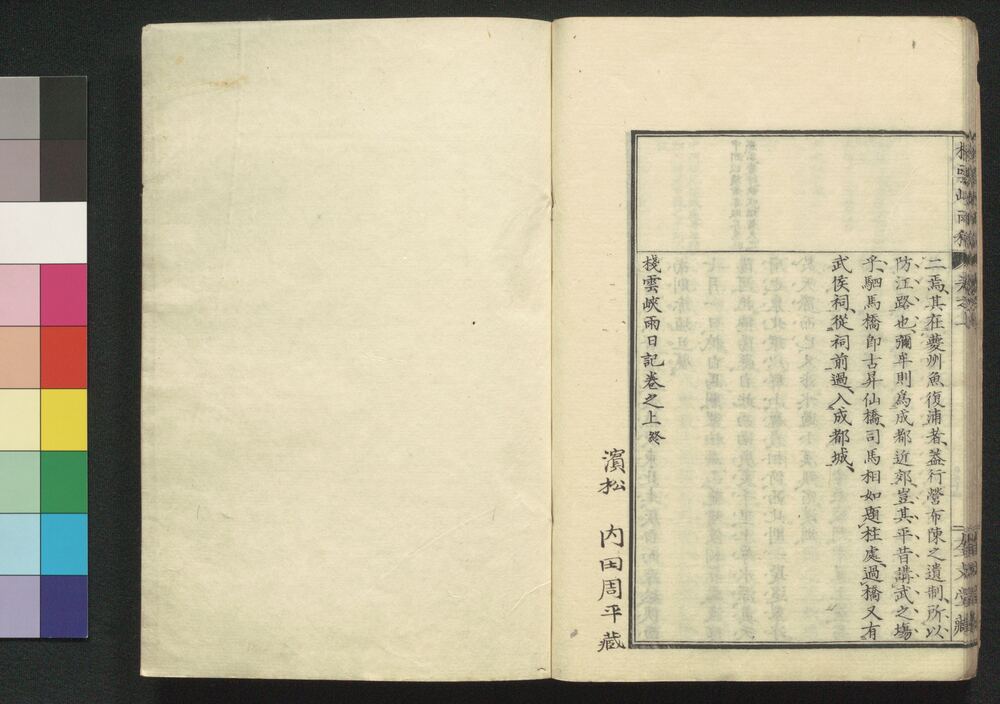 二焉、其在夔州魚復浦者、蓋行營布陳之遺制、所以
防江路也、彌牟則為成都近郊、豈其平昔講武之塲
乎、駟馬橋卽古昇仙橋、司馬相如題柱處、過橋又有
武侯祠、從祠前過、入成都城、
棧雲峽雨日記卷之上終
濱松 內田周平藏